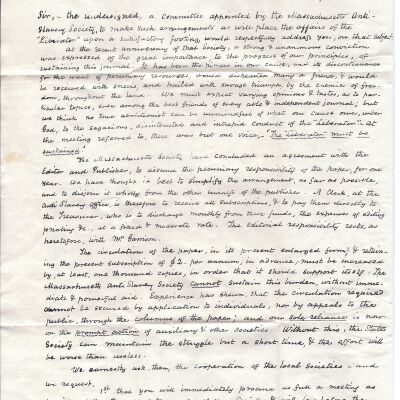 Sir, - the undersigned, a committee appointed by the Massachusetts Anti-
Slavery Society, to make such arrangements as will place the affairs of the
"Liberator" upon a satisfactory footing, would respectfully address you, on that subject.
At the recent anniversary of that Society, a strong & unanimous conviction
was expressed of the great importance, to the progress of our principles, of
sustaining this journal. It has been the pioneer in our cause, and its discontinuance
for the want of pecuniary resources, would dishearten many a friend, & would
be received with sneers and hailed with savage triumph, by the enemies of free-
dom, throughout the land. We must expect varying opinions & tastes, as to par-
ticular topics, even among the best friends of every able & independent journal; but
we think no true abolitionist can be unmindful of what our cause owes, under
God, to the sagacious, disinterested and intrepid conduct of the "Liberator". At
the meeting referred to, there was but one voice, - "The Liberator must be
sustained."
The Massachusetts Society have concluded an agreement with the
Editor and Publisher, to assume the pecuniary responsibility of the paper, for one
year. We have thought it best to simplify the arrangement, as far as possible,
and to disjoin it wholly from the other business of the publisher. A Clerk, at the
Anti Slavery Office is therefore to receive all subscriptions, & to pay them directly to
the Treasurer, who is to discharge monthly from these funds, the expenses of editing
printing &c., at a fixed & moderate rate. The editorial responsibility rests, as
heretofore, with Mr Garrison.
The circulation of the paper, in its present enlarged form, & retain-
ing the present subscription of $2. per annum, in advance, must be increased
by, at least, one thousand copies, in order that it should support itself. The
Massachusetts Anti Slavery Society cannot sustain this burden, without imme-
diate & powerful aid. Experience has shown, that the circulation required
cannot be secured by application to individuals, nor by appeals to the
public, through the columns of the paper; and our sole reliance is now
on the prompt action of auxiliary & other Societies. Without this, the State
Society can maintain the struggle but a short time, & the effort will
be worse than useless.
We earnestly ask, then, the cooperation of the local Societies - and
we request,
1st that you will immediately procure as full a meeting as